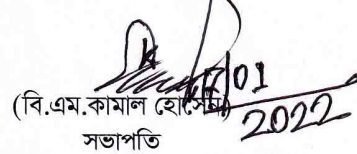 01
2022
(বি.এম.কামাল হোসেন)
সভাপতি